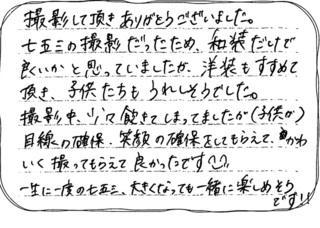 撮影して頂きありがとうございました。
七五三の撮影だったため、和装だけで
良いかと思っていましたが、洋装もすすめて
頂き、子供たちもうれしそうでした。
撮影中、少々飽きてしまってましたが(子供が)
目線の確保、笑顔の確保をしてもらえて、かわ
いく撮ってもらえて良かったです
一生に一度の七五三、大きくなっても一緒に楽しめそう
です!!